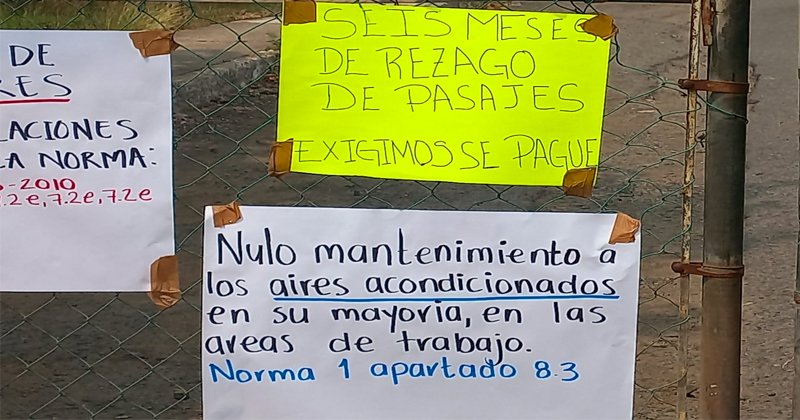 DE
RES
LACIONES
LA NORMA:
-2010
.2e, 7.2e, 7.2e
SEIS MESES
DE REZAGO
DE PASAJES
EXIGIMOS SE PAGUE
Nulo mantenimiento a
los aires acondicionados
en su mayoria, en las
areas de trabajo.
Norma 1 apartado 8.3